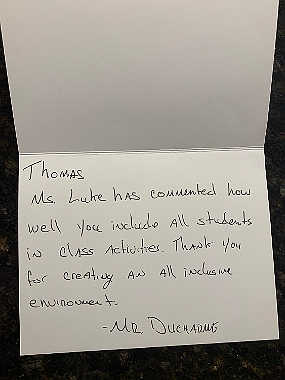 Thomas
Ms. Luke has commented how
well you include all students
in class activities. Thank you
for creating an all inclusive
environment.
- Mr. Ducharme